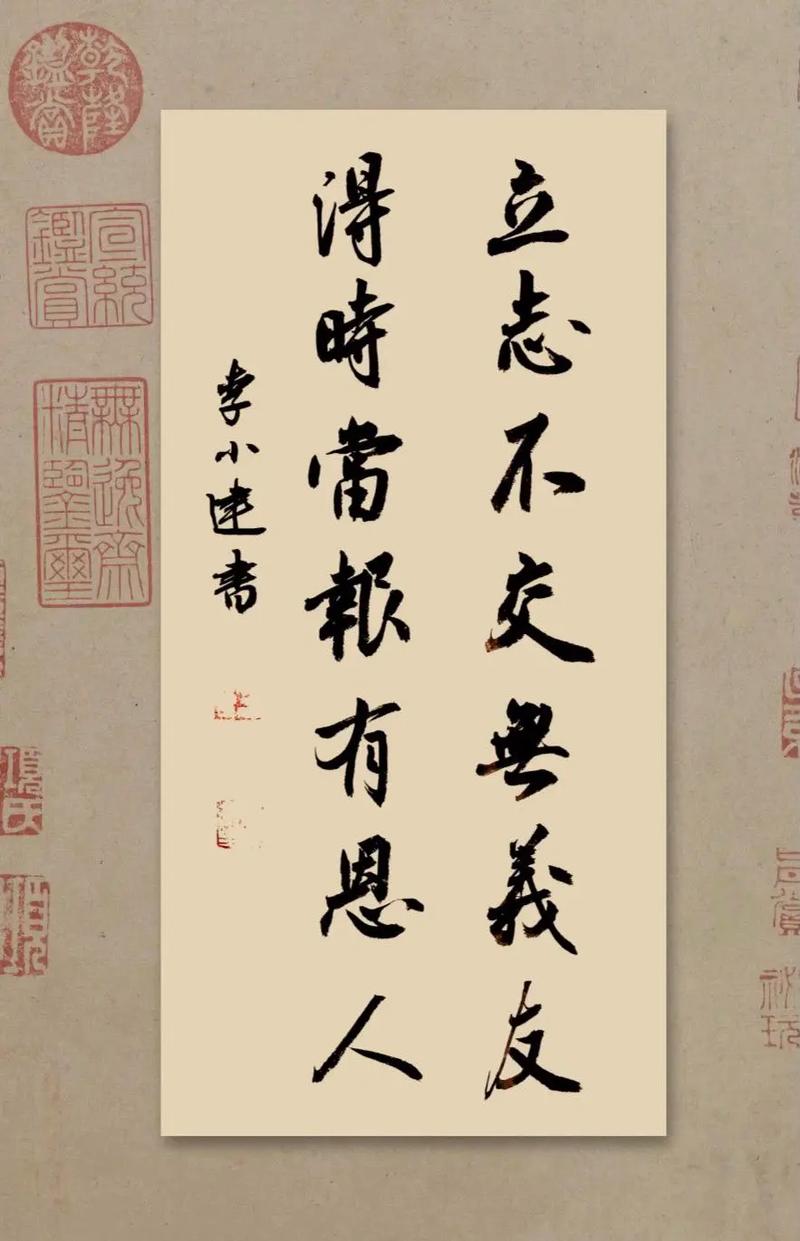 立志不交無義友
得時當報有恩人
李小建書
乾隆鑑賞
宣統鑑賞
無逸齋精鑒璽